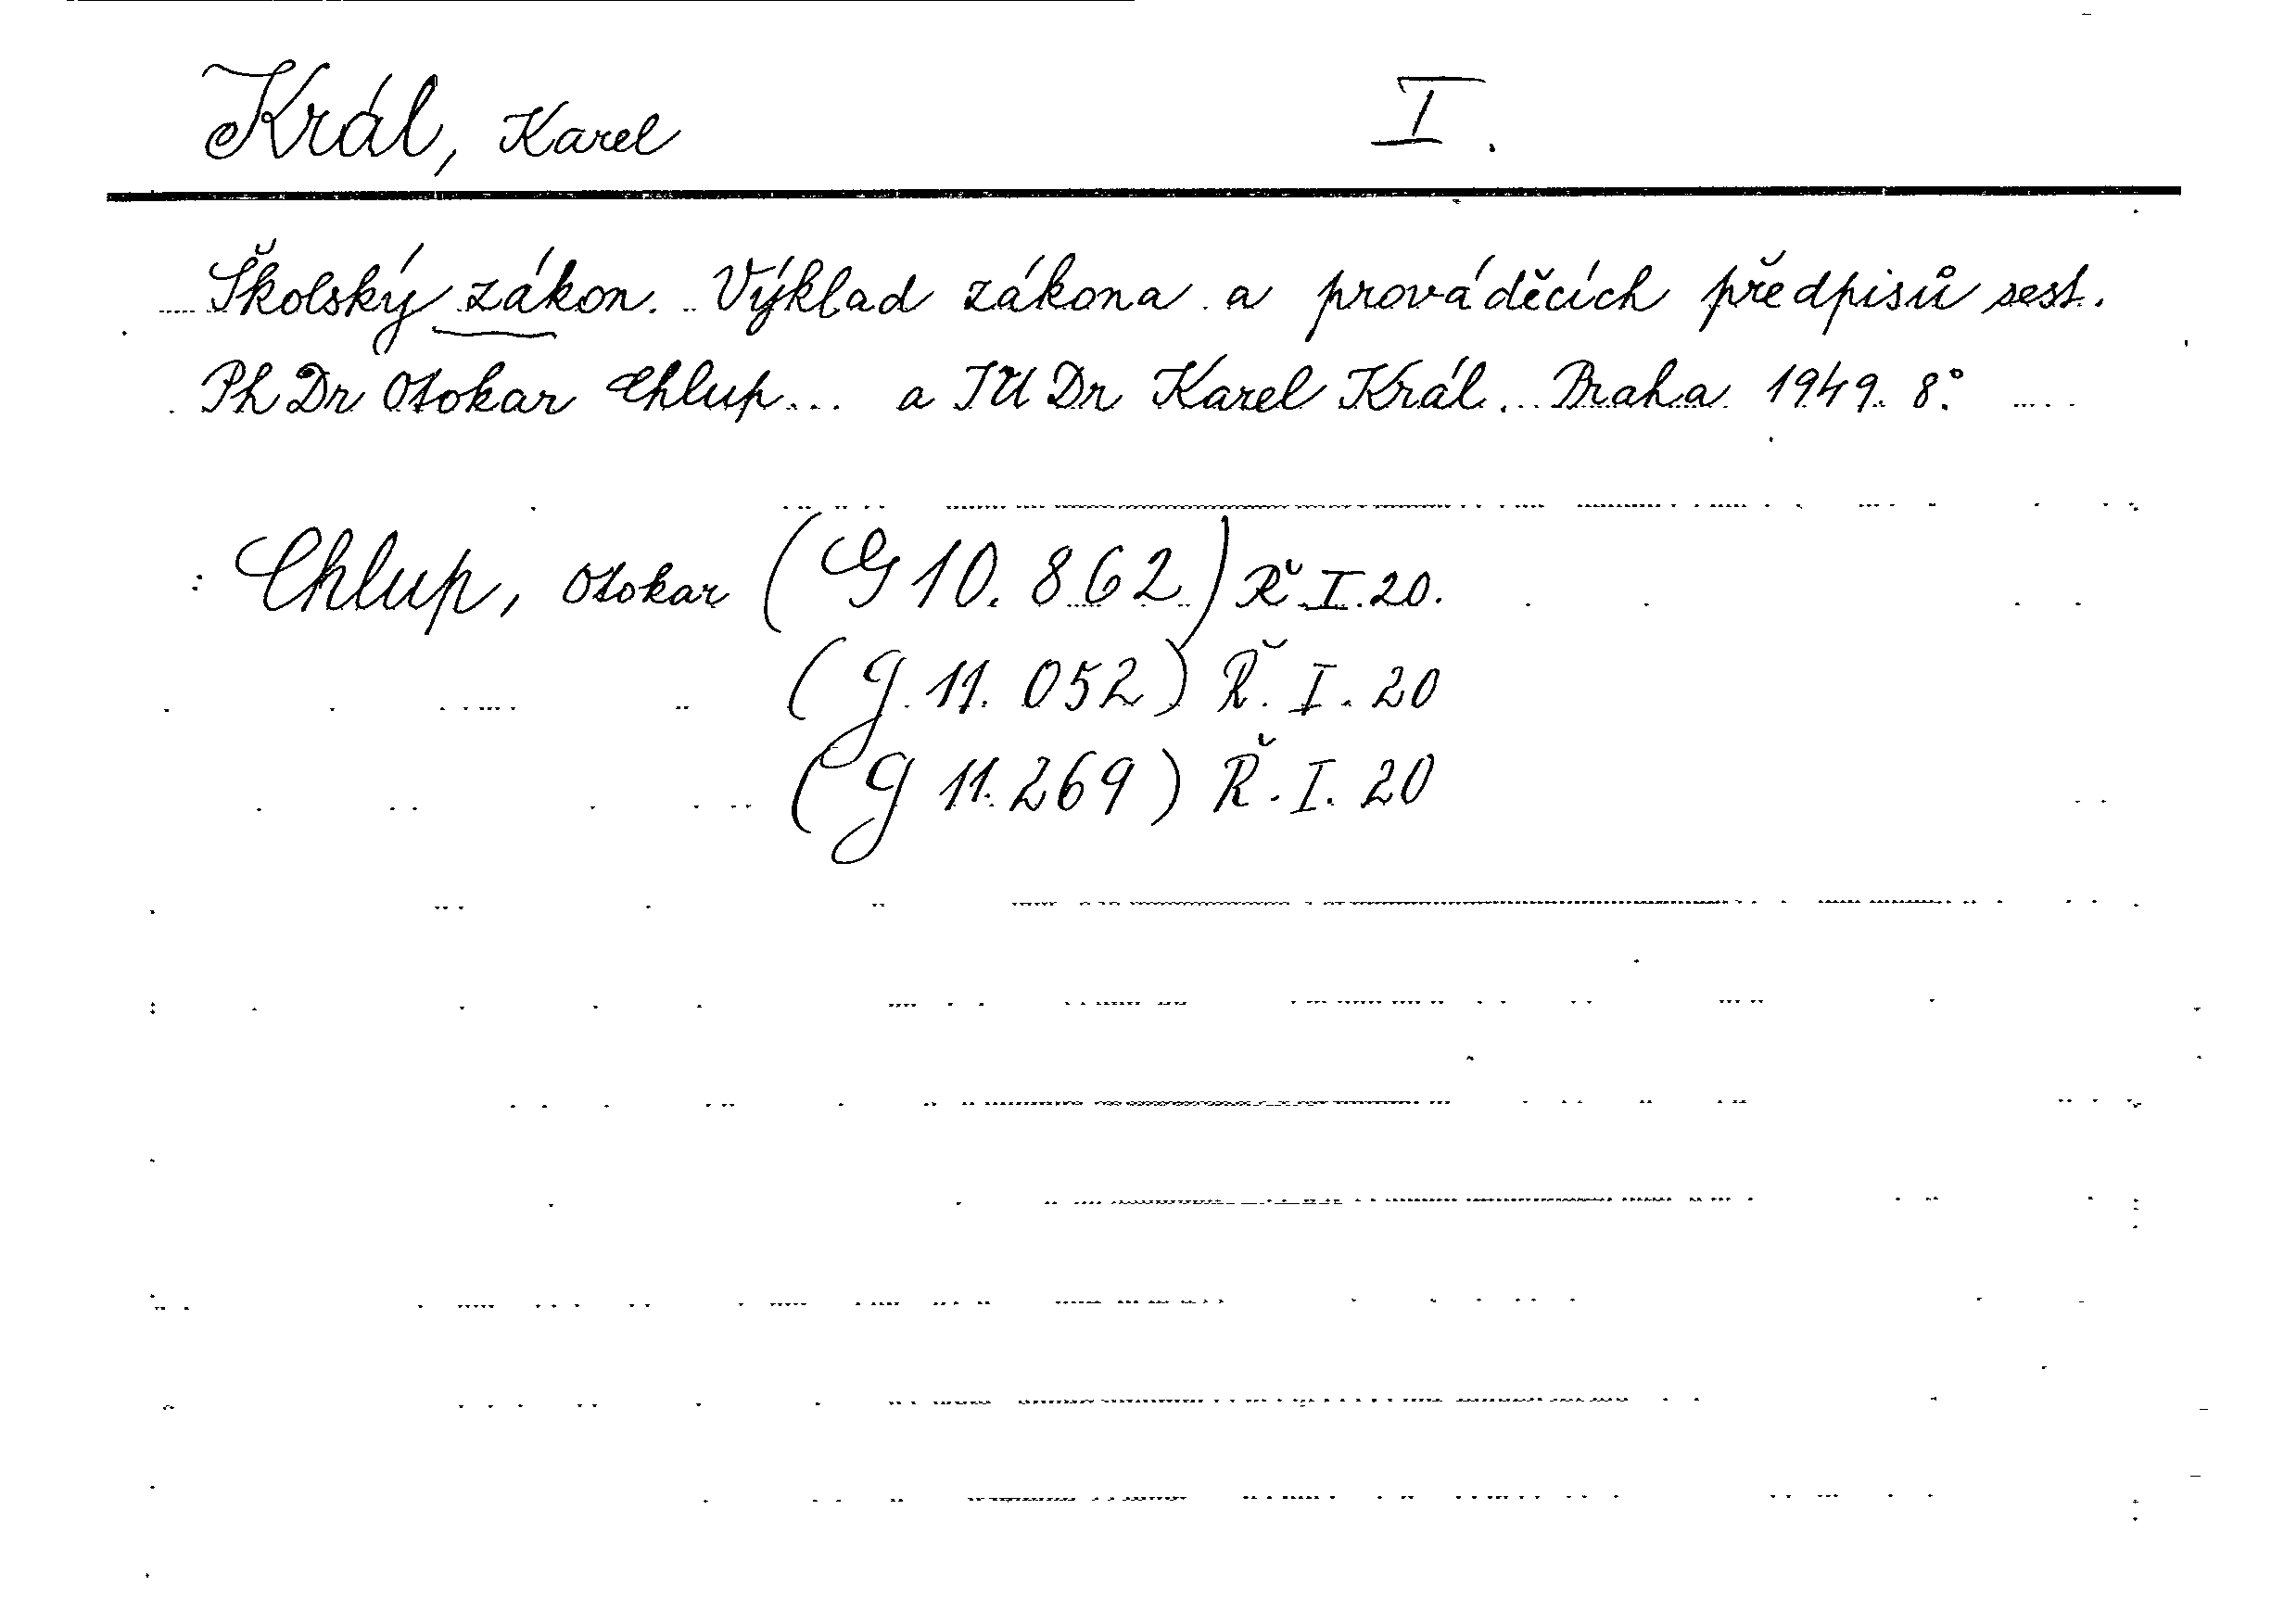 Král, Karel I.
Školský zákon. Výklad zákona a prováděcích předpisů sest.
PhDr Otokar Chlup... a JUDr Karel Král. Praha 1949. 8°.
Chlup, Otokar (G 10.862) Ř I.20.
(G 11.052) Ř. I. 20
(G 11.269) Ř. I. 20